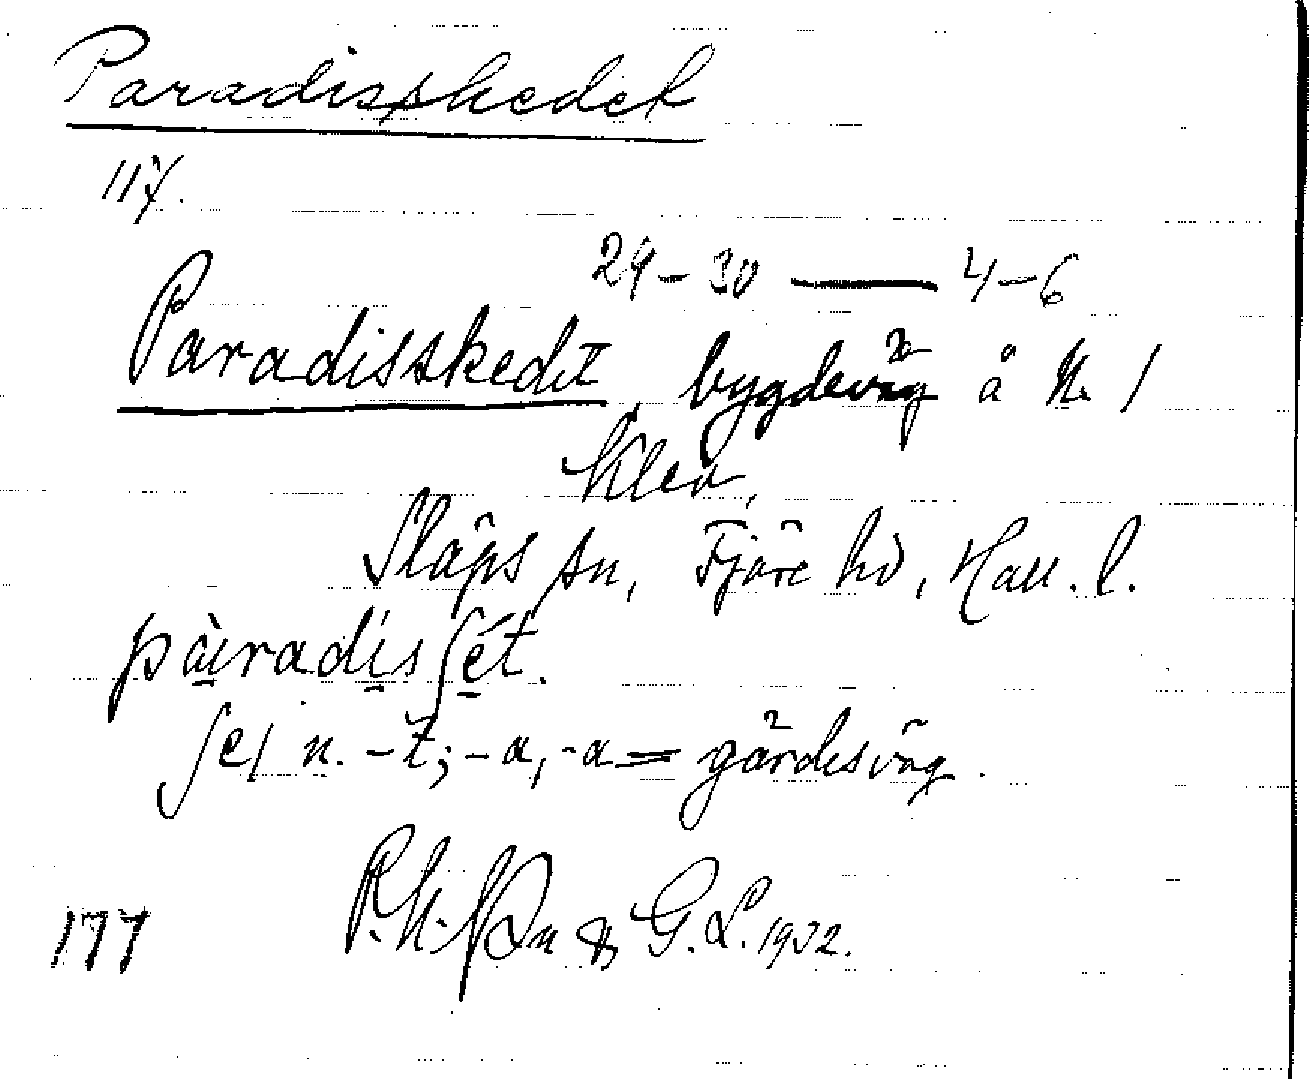 Paradisskedet
117.
29-30 — 4-6
Paradisskedet, bygdeväg å N. 1
Klev,
Släps sn, Fjäre hd, Hall. l.
pàiradisʃét.
ʃe/ n. -t; -a, -a = gärdesväg.
&  G. L. 1932.
177